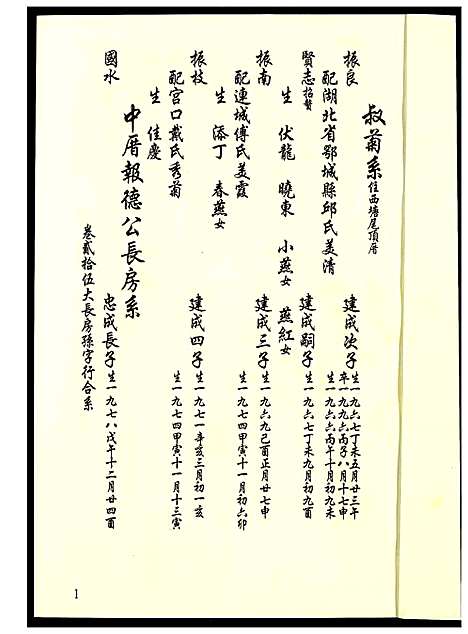 叔菊系 住西塘尾頂厝
振良 建成次子 生一九六七丁未五月廿三午 卒一九九六丙子八月十七申
配湖北省鄂城縣邱氏美清 生一九六六丙午十月初九未
賢志 招贅 建成嗣子 生一九六七丁未九月初九酉
生 伏龍 曉東 小燕女 燕紅女
振南 建成三子 生一九六九己酉正月廿七申
配連城傅氏美霞 生一九七四甲寅十一月初六卯
生 添丁 春燕女
振枝 建成四子 生一九七一辛亥三月初一亥
配宮口戴氏秀菊 生一九七四甲寅十一月十三寅
生 佳慶
中厝報德公長房系
國水 忠成長子 生一九七八戊午十二月廿四酉
卷貳拾伍大長房孫字行合系
1